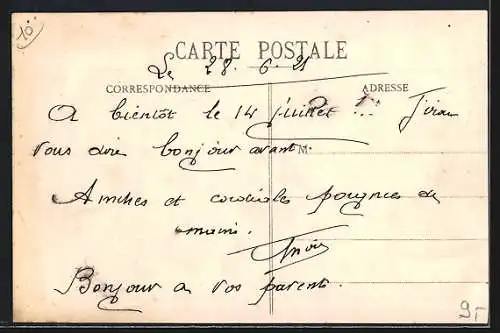 10
CARTE POSTALE
Le 28. 6. 21
CORRESPONDANCE ADRESSE
A bientôt le 14 juillet ... J'irai
vous dire bonjour avant.
M
Amitiés et cordiales poignées de
mains.
Bonjour a vos parents.
9.-